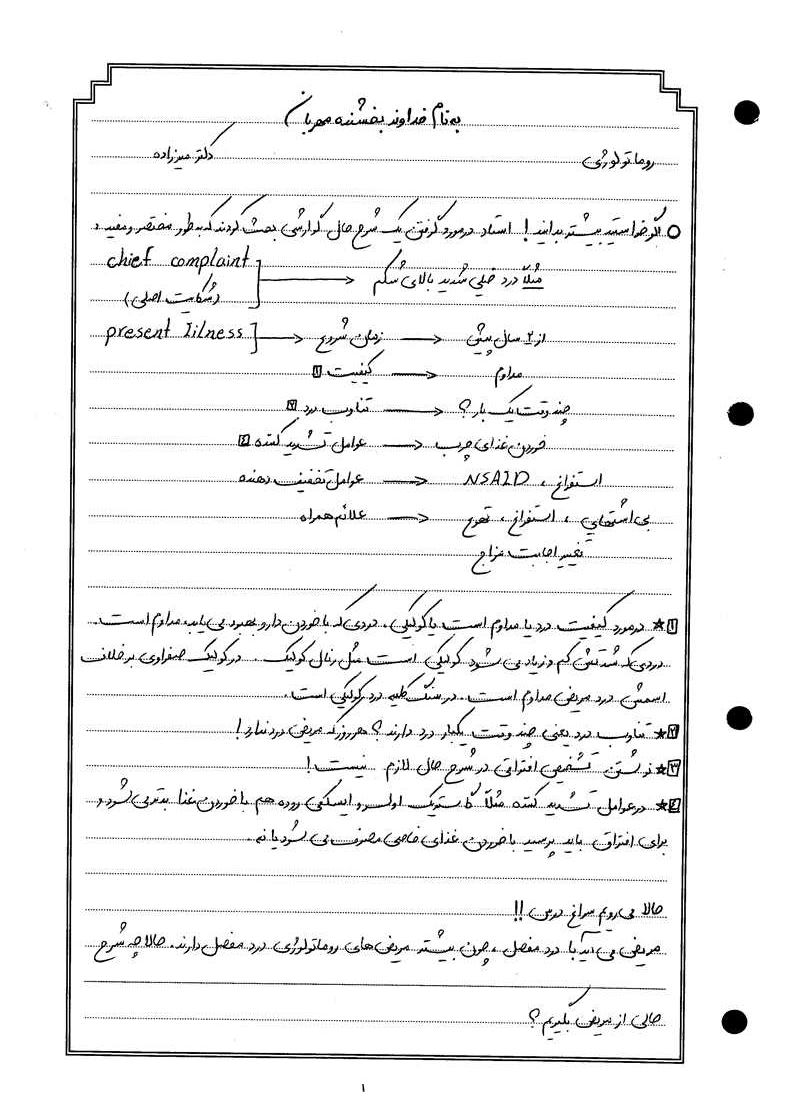 به نام خداوند بخشنده مهربان
روماتولوژی دکتر میرزاده
اگر خواستید بیشتر بدانید! استاد در مورد گرفتن یک شرح حال گوارشی بحث کردند که به طور مختصر و مفید:
chief complaint
(شکایت اصلی) ] ⟶ مثلاً درد خیلی شدید بالای شکم
present Iilness ] ⟶ زمان شروع ⟵ از ۲ سال پیش
کیفیت [۱] ⟶ مداوم
تناوب درد [۲] ⟶ چند وقت یک بار؟
عوامل تشدید کننده [٤] ⟶ خوردن غذای چرب
عوامل تخفیف دهنده ⟶ NSAID ، استفراغ
علائم همراه ⟶ تهوع ، استفراغ ، بی اشتهایی
تغییر اجابت مزاج
[۱]★ در مورد کیفیت درد یا مداوم است یا کولیکی. دردی که با خوردن دارو بهبود می یابد، مداوم است.
دردی که شدتش کم و زیاد می شود کولیکی است مثل رنال کولیک. در کولیک صفراوی برخلاف
اسمش درد مریض مداوم است. در سنگ کلیه درد کولیکی است.
[۲]★ تناوب درد یعنی چند وقت یکبار درد دارند؟ هر روز که مریض درد ندارد!
[۳]★ نوشتن تشخیص افتراقی در شرح حال لازم نیست!
[٤]★ در عوامل تشدید کننده مثلاً گاستریک اولسر و ایسکمی روده هم با خوردن غذا بدتر می شود و
برای افتراق باید پرسید با خوردن غذای خاصی مصرف می شود یا نه.
حالا می رویم سراغ درس!!
مریض می آید با درد مفصل، چون بیشتر مریض های روماتولوژی درد مفصل دارند. حالا چه شرح
حالی از مریض بگیریم؟
۱